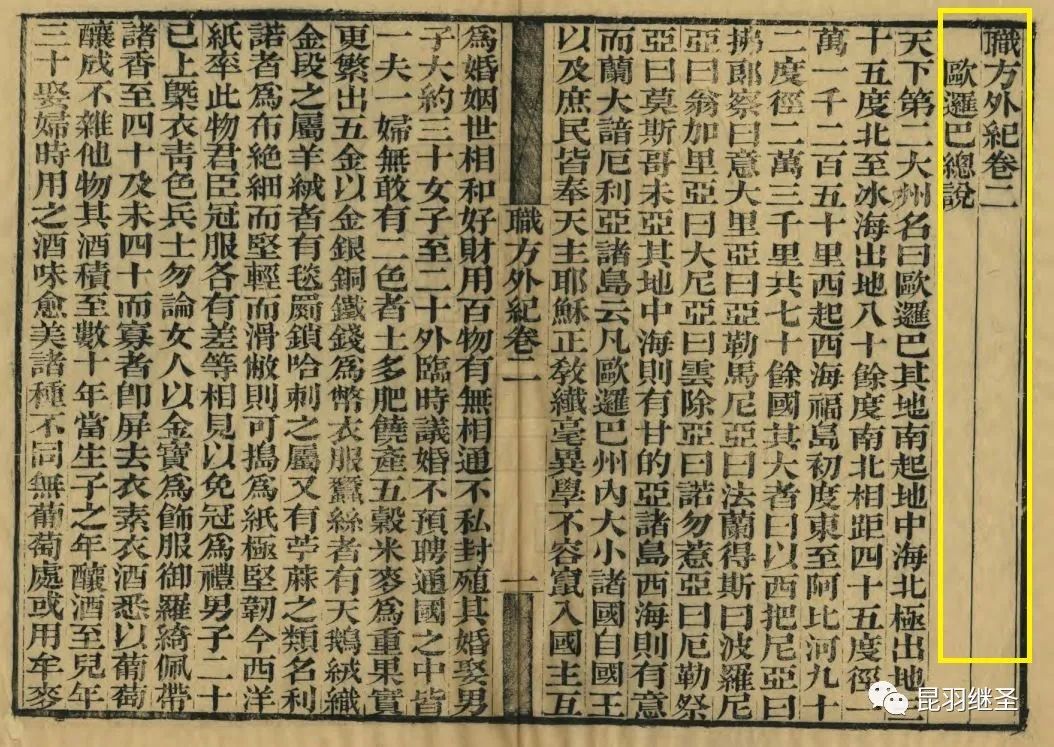 職方外紀卷二
歐邏巴總說
天下第二大州名曰歐邏巴其地南起地中海北極出地三
十五度北至冰海出地八十餘度南北相距四十五度徑一
萬一千二百五十里西起西海福島初度東至阿比河九十
二度徑二萬三千里共七十餘國其大者曰以西把尼亞曰
拂郎察曰意大里亞曰亞勒馬尼亞曰法蘭得斯曰波羅尼
亞曰翁加里亞曰大尼亞曰雲除亞曰諾勿惹亞曰厄勒祭
亞曰莫斯哥未亞其地中海則有甘的亞諸島西海則有意
而蘭大諳厄利亞諸島云凡歐邏巴州內大小諸國自國王
以及庶民皆奉天主耶穌正敎纖毫異學不容竄入國主互
職方外紀卷二
一
為婚姻世相和好財用百物有無相通不私封殖其婚娶男
子大約三十女子至二十外臨時議婚不預聘通國之中皆
一夫一婦無敢有二色者土多肥饒產五穀米麥為重果實
更繁出五金以金銀銅鐵錢為幣衣服蠶絲者有天鵝絨織
金段之屬羊絨者有毯罽鎖哈剌之屬又有苧蔴之類名利
諾者為布絕細而堅輕而滑敝則可搗為紙極堅韌今西洋
紙率此物君臣冠服各有差等相見以免冠為禮男子二十
已上槩衣靑色兵士勿論女人以金寶為飾服御羅綺佩帶
諸香至四十及未四十而寡者卽屏去衣素衣酒悉以葡萄
釀成不雜他物其酒積至數十年當生子之年釀酒至兒年
三十娶婦時用之酒味愈美諸種不同無葡萄處或用牟麥
昆羽继圣